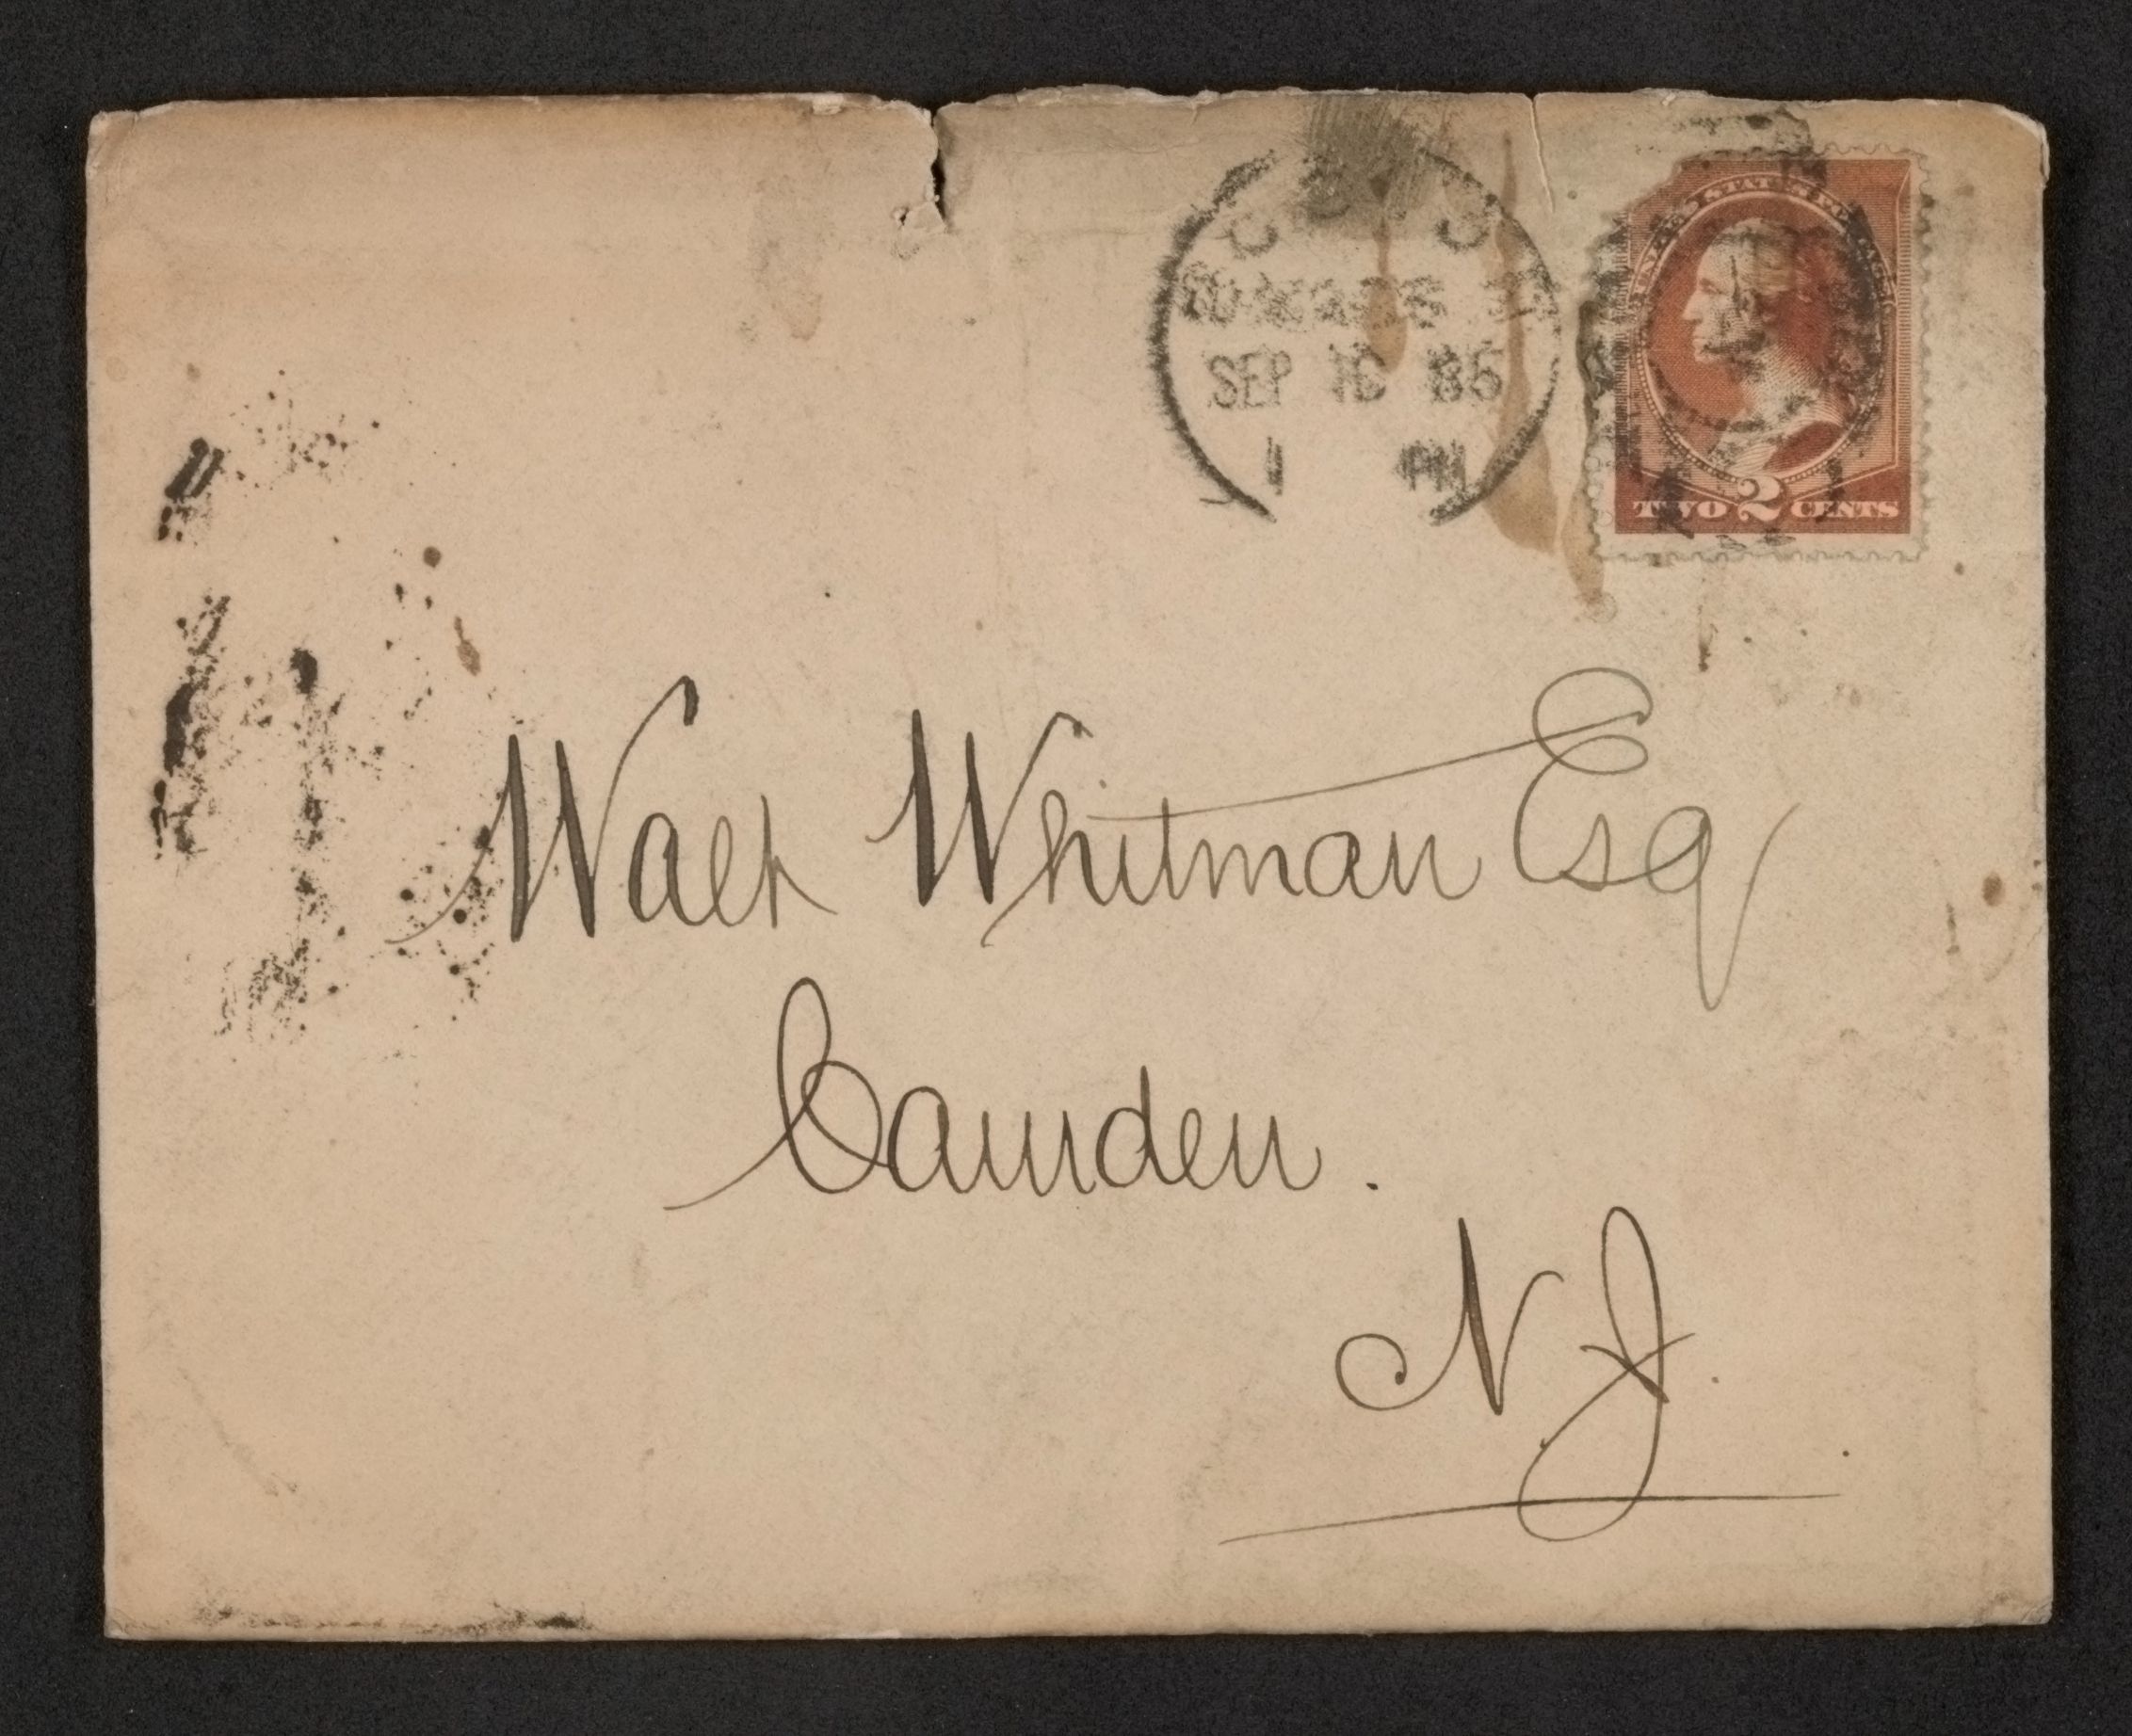 SEP 85
1 PM
UNITED STATES POSTAGE
TWO 2 CENTS
Walt Whitman Esq
Camden.
N.J.